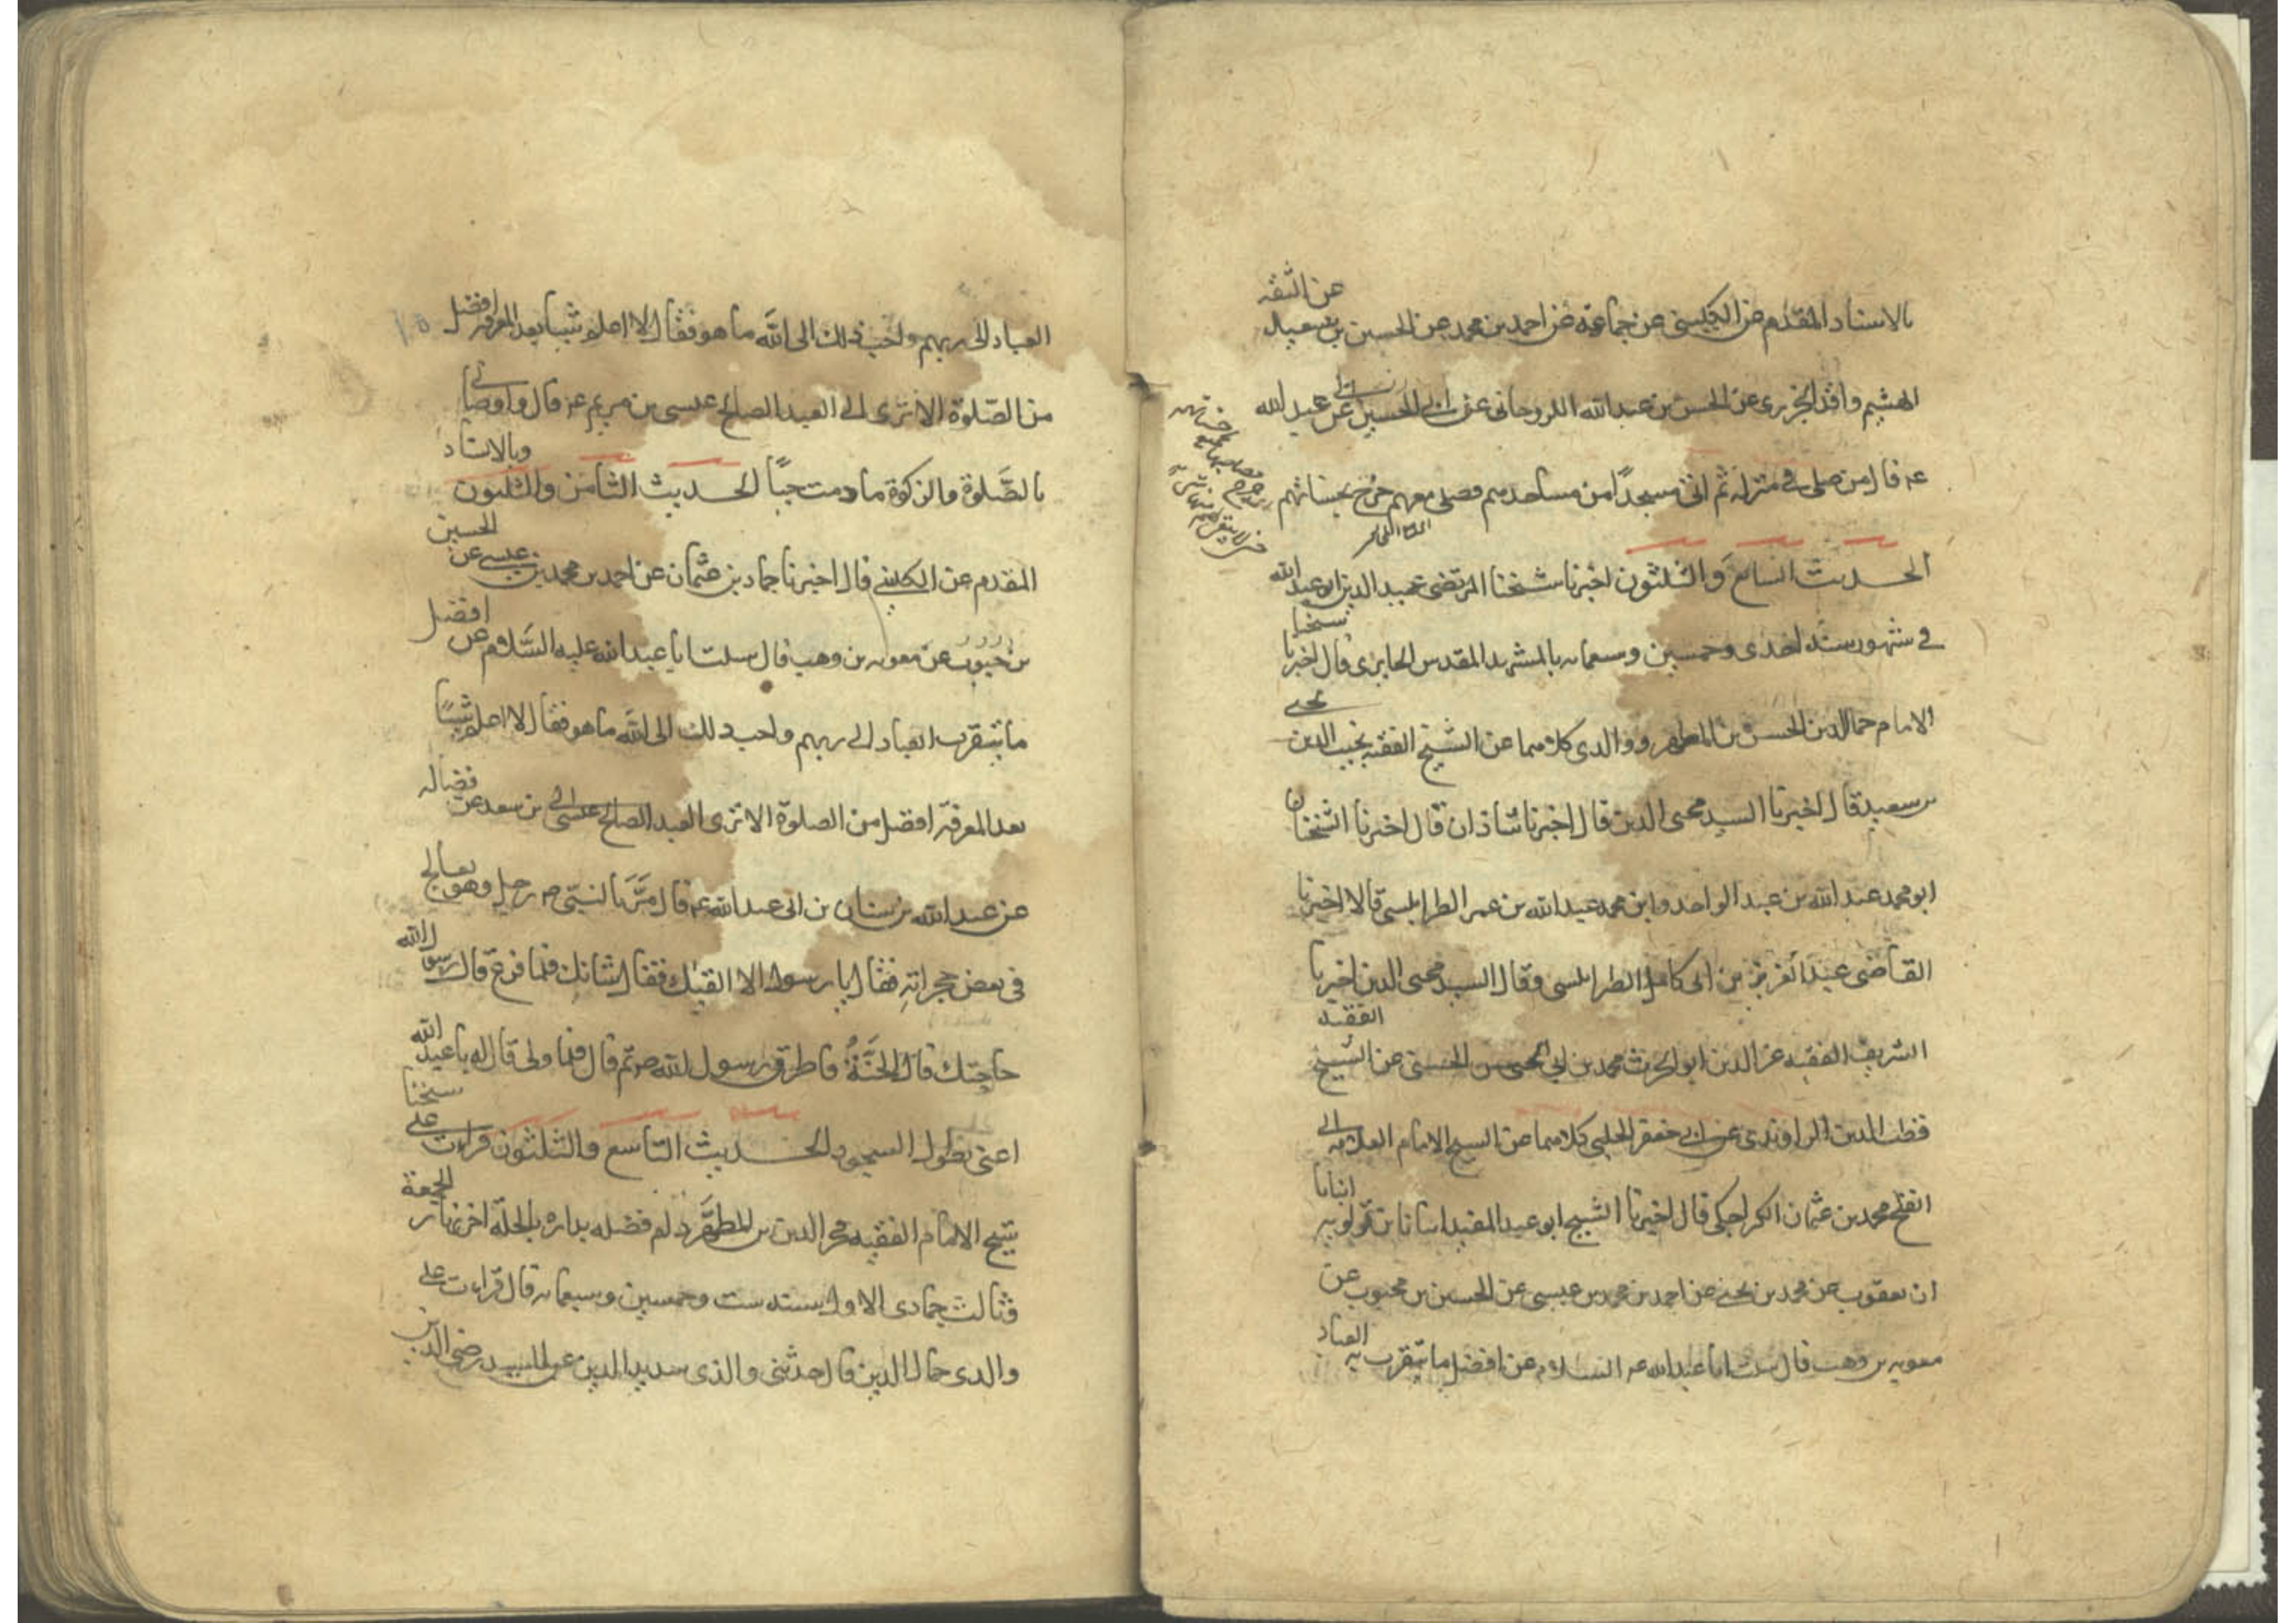 بالاسناد المقدم عن الكليني عن جماعة عن احمد بن محمد عن الحسين بن سعيد عن الثقة
الهيثم واقد الجزري عن الحسن بن عبد الله الارجاني عن ابي الحسين عن عبد الله
عم قال من صلى في منزله ثم اتى مسجدًا من مساجدهم فصلى معهم خرج بحسناتهم
الحديث السابع والثلثون اخبرنا شيخنا المرتضى عميد الدين ابو عبد الله
في شهور سنة احدى وخمسين وسبعمايه بالمشهد المقدس الحايري قال اخبرنا شيخنا
الامام جمال الدين الحسن بن المطهر ووالدي كلاهما عن الشيخ الفقيه نجيب الدين يحيى
بن سعيد قال اخبرنا السيد محيى الدين قال اخبرنا شاذان قال اخبرنا الشيخان
ابو محمد عبد الله بن عبد الواحد وابن محمد عبد الله بن عمر الطرابلسي قالا اخبرنا
القاضى عبد العزيز بن ابى كامل الطرابلسي وقال السيد محيى الدين اخبرنا
الشريف الفقيه عز الدين ابو الحرث محمد بن الحسن الحسيني عن الشيخ الفقيه
قطب الدين الراوندى عن ابي جعفر الحلبي كلاهما عن الشيخ الامام العلامه ابي
الفتح محمد بن عثمان الكراجكى قال اخبرنا الشيخ ابو عبد المفيد انبانا بن قولويه انبانا
ان يعقوب عن محمد بن يحيى عن احمد بن محمد بن عيسى عن الحسن بن محبوب عن
معويه بن وهب قال سئلت ابا عبد الله عم السلام عن افضل ما يتقرب به العباد
العباد الى ربهم واحب ذلك الى الله ما هو فقال لا اعلم شيئا بعد المعرفة افضل
من الصلوة الا ترى الى العبد الصالح عيسى بن مريم عم قال واوصانى
بالصلوة والزكوة ما دمت حيًا الحديث الثامن والثلثون وبالاسناد
المقدم عن الكليني قال اخبرنا حماد بن عثمان عن احمد بن محمد بن عيسى عن الحسين
بن محبوب عن معويه بن وهب قال سئلت ابا عبد الله عليه السلام عن افضل
ما يتقرب العباد الى ربهم واحب ذلك الى الله ما هو فقال لا اعلم شيئًا
بعد المعرفة افضل من الصلوة الا ترى العبد الصالح عيسى الى بن سعد عن فضاله
عن عبد الله بن سنان بن ابى عبد الله عم قال مر بالنبي ص رجل وهو يعالج
فى بعض حجراته فقال يا رسول الا القيك فقال شانك فلما فرغ قال رسول الله
حاجتك قال الجنة فاطرق رسول الله ص ثم قال فلما ولى قال له يا عبد الله
اعنى بطول السجود الحديث التاسع والثلثون قرات على شيخنا
شيخ الامام الفقيه فخر الدين بن المطهر دام فضله بداره بالحلة اخر نهار الجمعة
ثالث جمادى الاولى سنة ست وخمسين وسبعمايه قال قرات على
والدى جمال الدين قال حدثنى والدى سديد الدين عن السيد رضى الدين بن